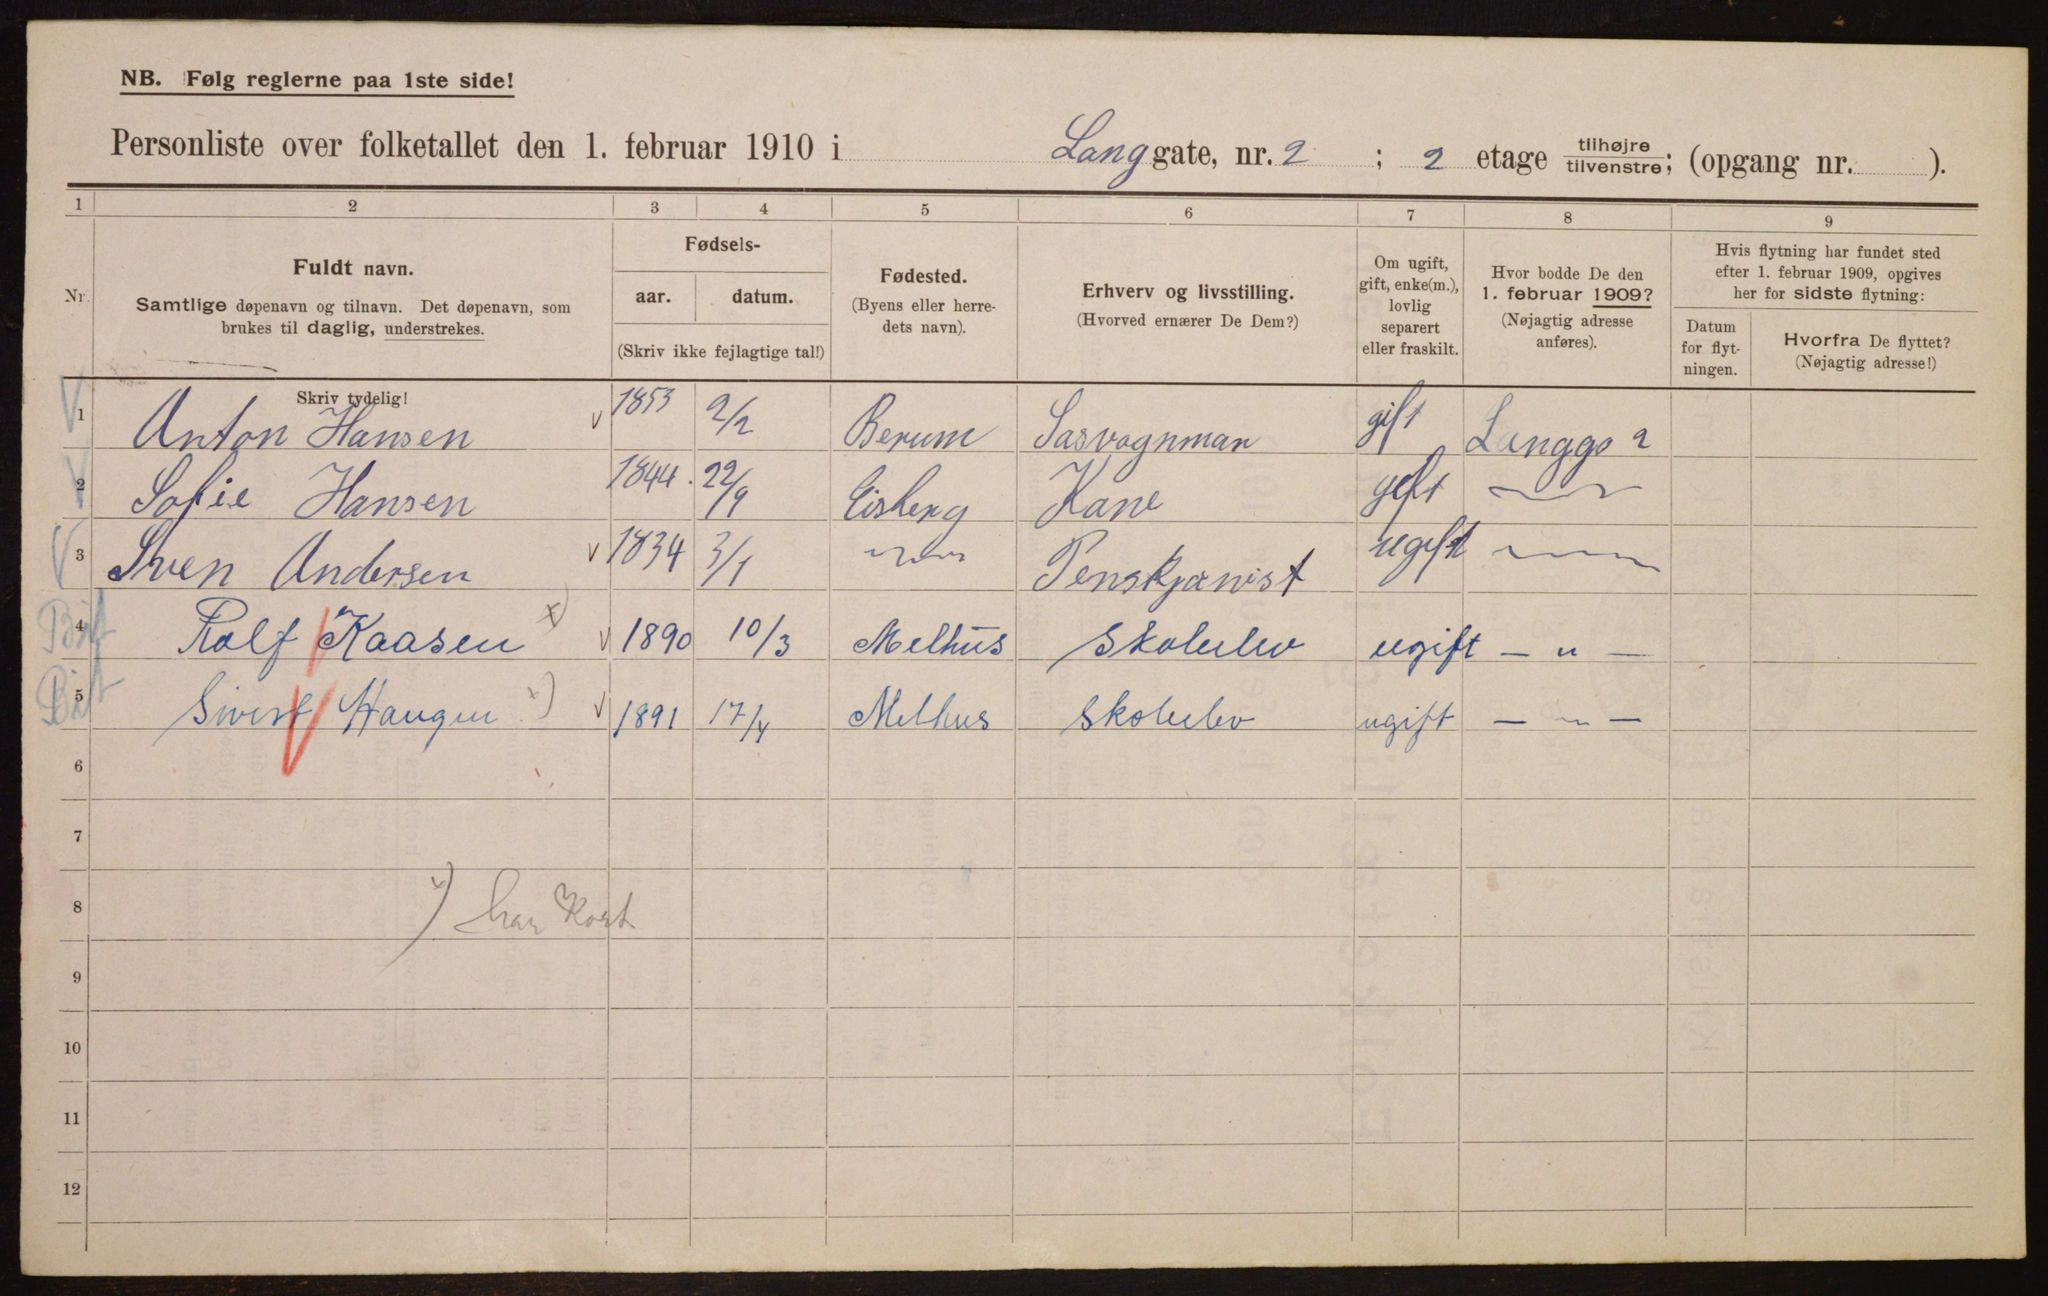 NB. Følg reglerne paa 1ste side!
Personliste over folketallet den 1. februar 1910 i Lang gate, nr. 2 ; 2 etage tilhøjre tilvenstre; (opgang nr. ).
1 2 3 4 5 6 7 8 9
Nr.
Fuldt navn.
Samtlige døpenavn og tilnavn. Det døpenavn, som
brukes til daglig, understrekes.
Skriv tydelig!
Fødsels-
aar. datum.
(Skriv ikke fejlagtige tal!)
Fødested.
(Byens eller herre-
dets navn).
Erhverv og livsstilling.
(Hvorved ernærer De Dem?)
Om ugift,
gift, enke(m.),
lovlig
separert
eller fraskilt.
Hvor bodde De den
1. februar 1909?
(Nøjagtig adresse
anføres).
Hvis flytning har fundet sted
efter 1. februar 1909, opgives
her for sidste flytning:
Datum
for flyt-
ningen.
Hvorfra De flyttet?
(Nøjagtig adresse!)
1 Anton Hansen 1853 2/2 Berum Sasvognman gift Langga 2
2 Sofie Hansen 1844. 22/9 Eisberg Kane gift
3 Sven Andersen 1834 3/1 Penskjanist ugift
4 Rolf Kaasen x) 1890 10/3 Melhus Skolelev ugift — " —
5 Sivert Haugen x) 1891 17/4 Melhus Skolelev ugift — " —
6
7
8 x) har Kort
9
10
11
12